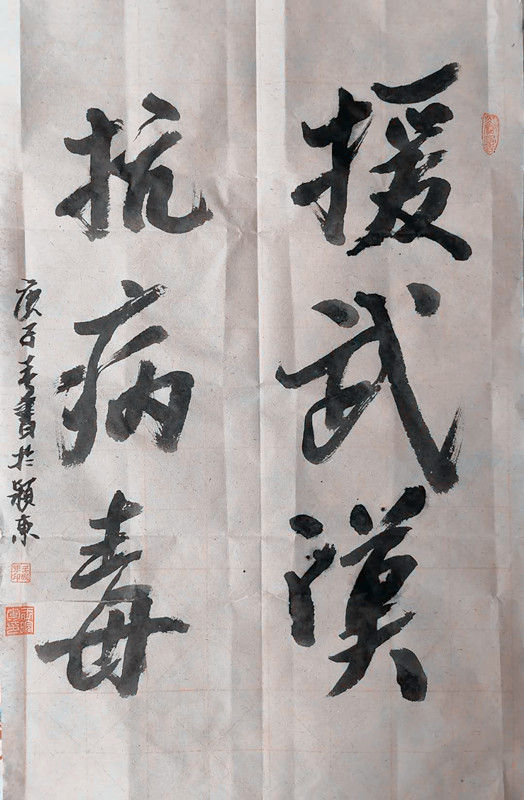 援武漢
抗病毒
庚子春書於潁東